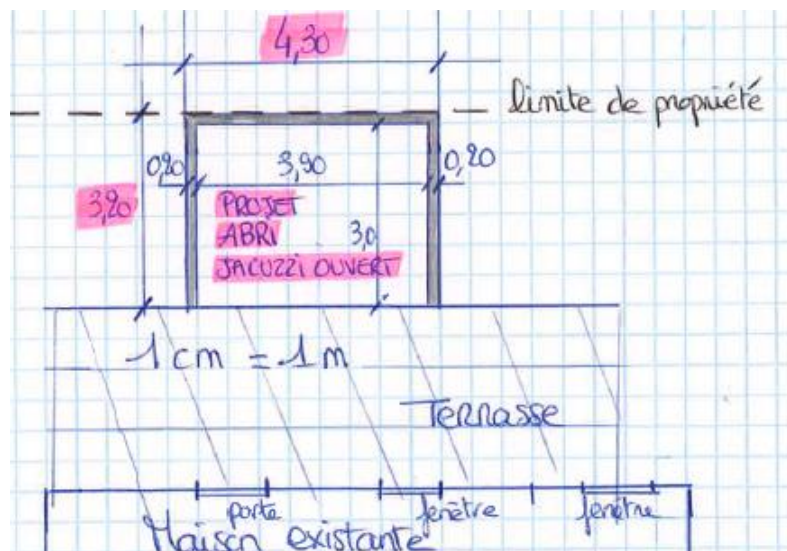 4,30
limite de propriété
0,20 3,90 0,20
3,20
PROJET
ABRI 3,0
JACUZZI OUVERT
1 cm = 1 m
Terrasse
porte fenêtre fenêtre
Maison existante